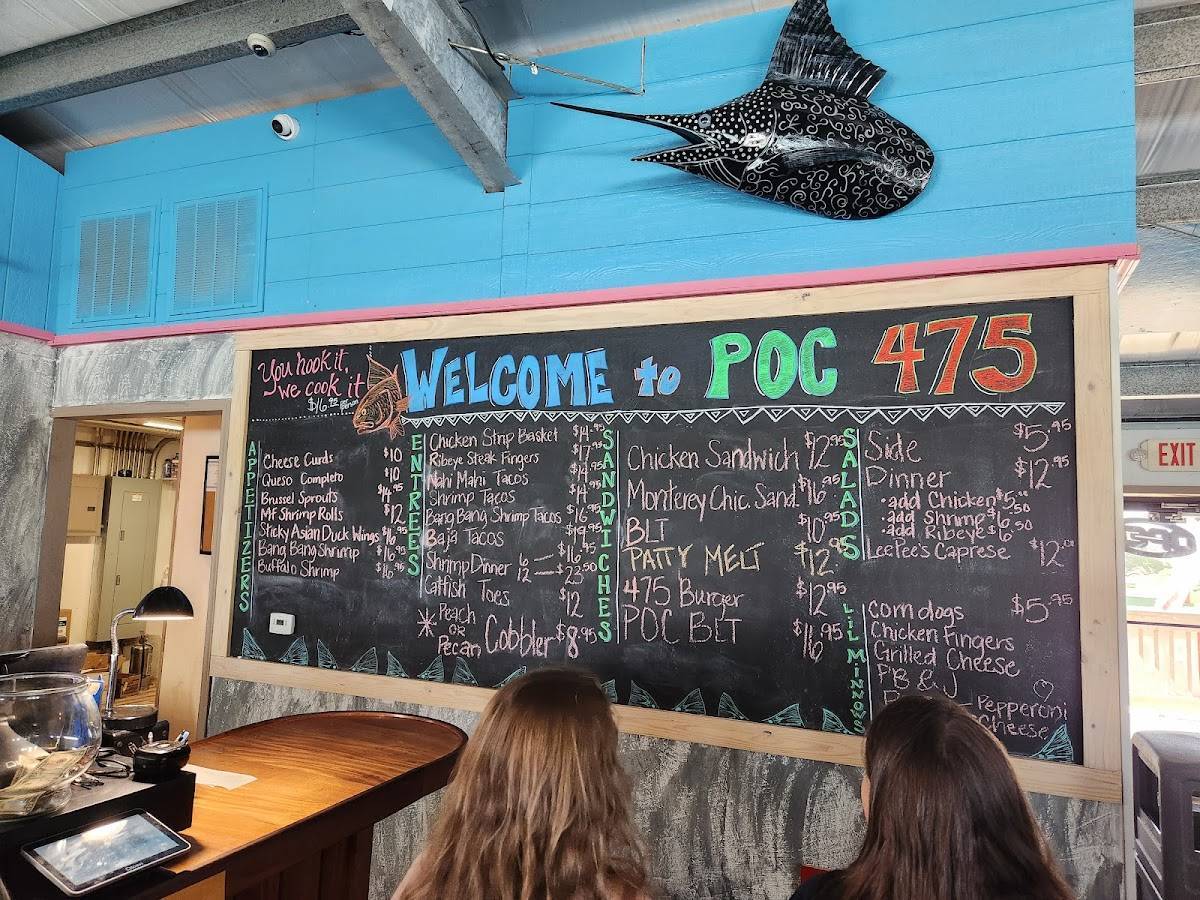 You hook it,
we cook it!
$16.95 per person
WELCOME to POC 475
APPETIZERS
Cheese Curds $10
Queso Completo $10
Brussel Sprouts $14.95
MF Shrimp Rolls $12
Sticky Asian Duck Wings $16.95
Bang Bang Shrimp $16.95
Buffalo Shrimp $16.95
ENTREES
Chicken Strip Basket $14.95
Ribeye Steak Fingers $17.95
Mahi Mahi Tacos $14.95
Shrimp Tacos $14.95
Bang Bang Shrimp Tacos $16.95
Baja Tacos $19.95
Shrimp Dinner 6 — $16.95
12 — $23.50
Catfish Toes $12
* Peach or Pecan Cobbler $8.95
SANDWICHES
Chicken Sandwich $12.95
Monterey Chic. Sand. $16.95
BLT $10.95
PATTY MELT $12.95
475 Burger $12.95
POC BLT $16.95
SALADS
Side $5.95
Dinner $12.95
• add Chicken $5.50
• add Shrimp $6.50
• add Ribeye $6.50
LeeTee's Caprese $12
LIL MINNOWS
corn dogs $5.95
Chicken Fingers
Grilled Cheese
PB & J
Pepperoni
Cheese
EXIT